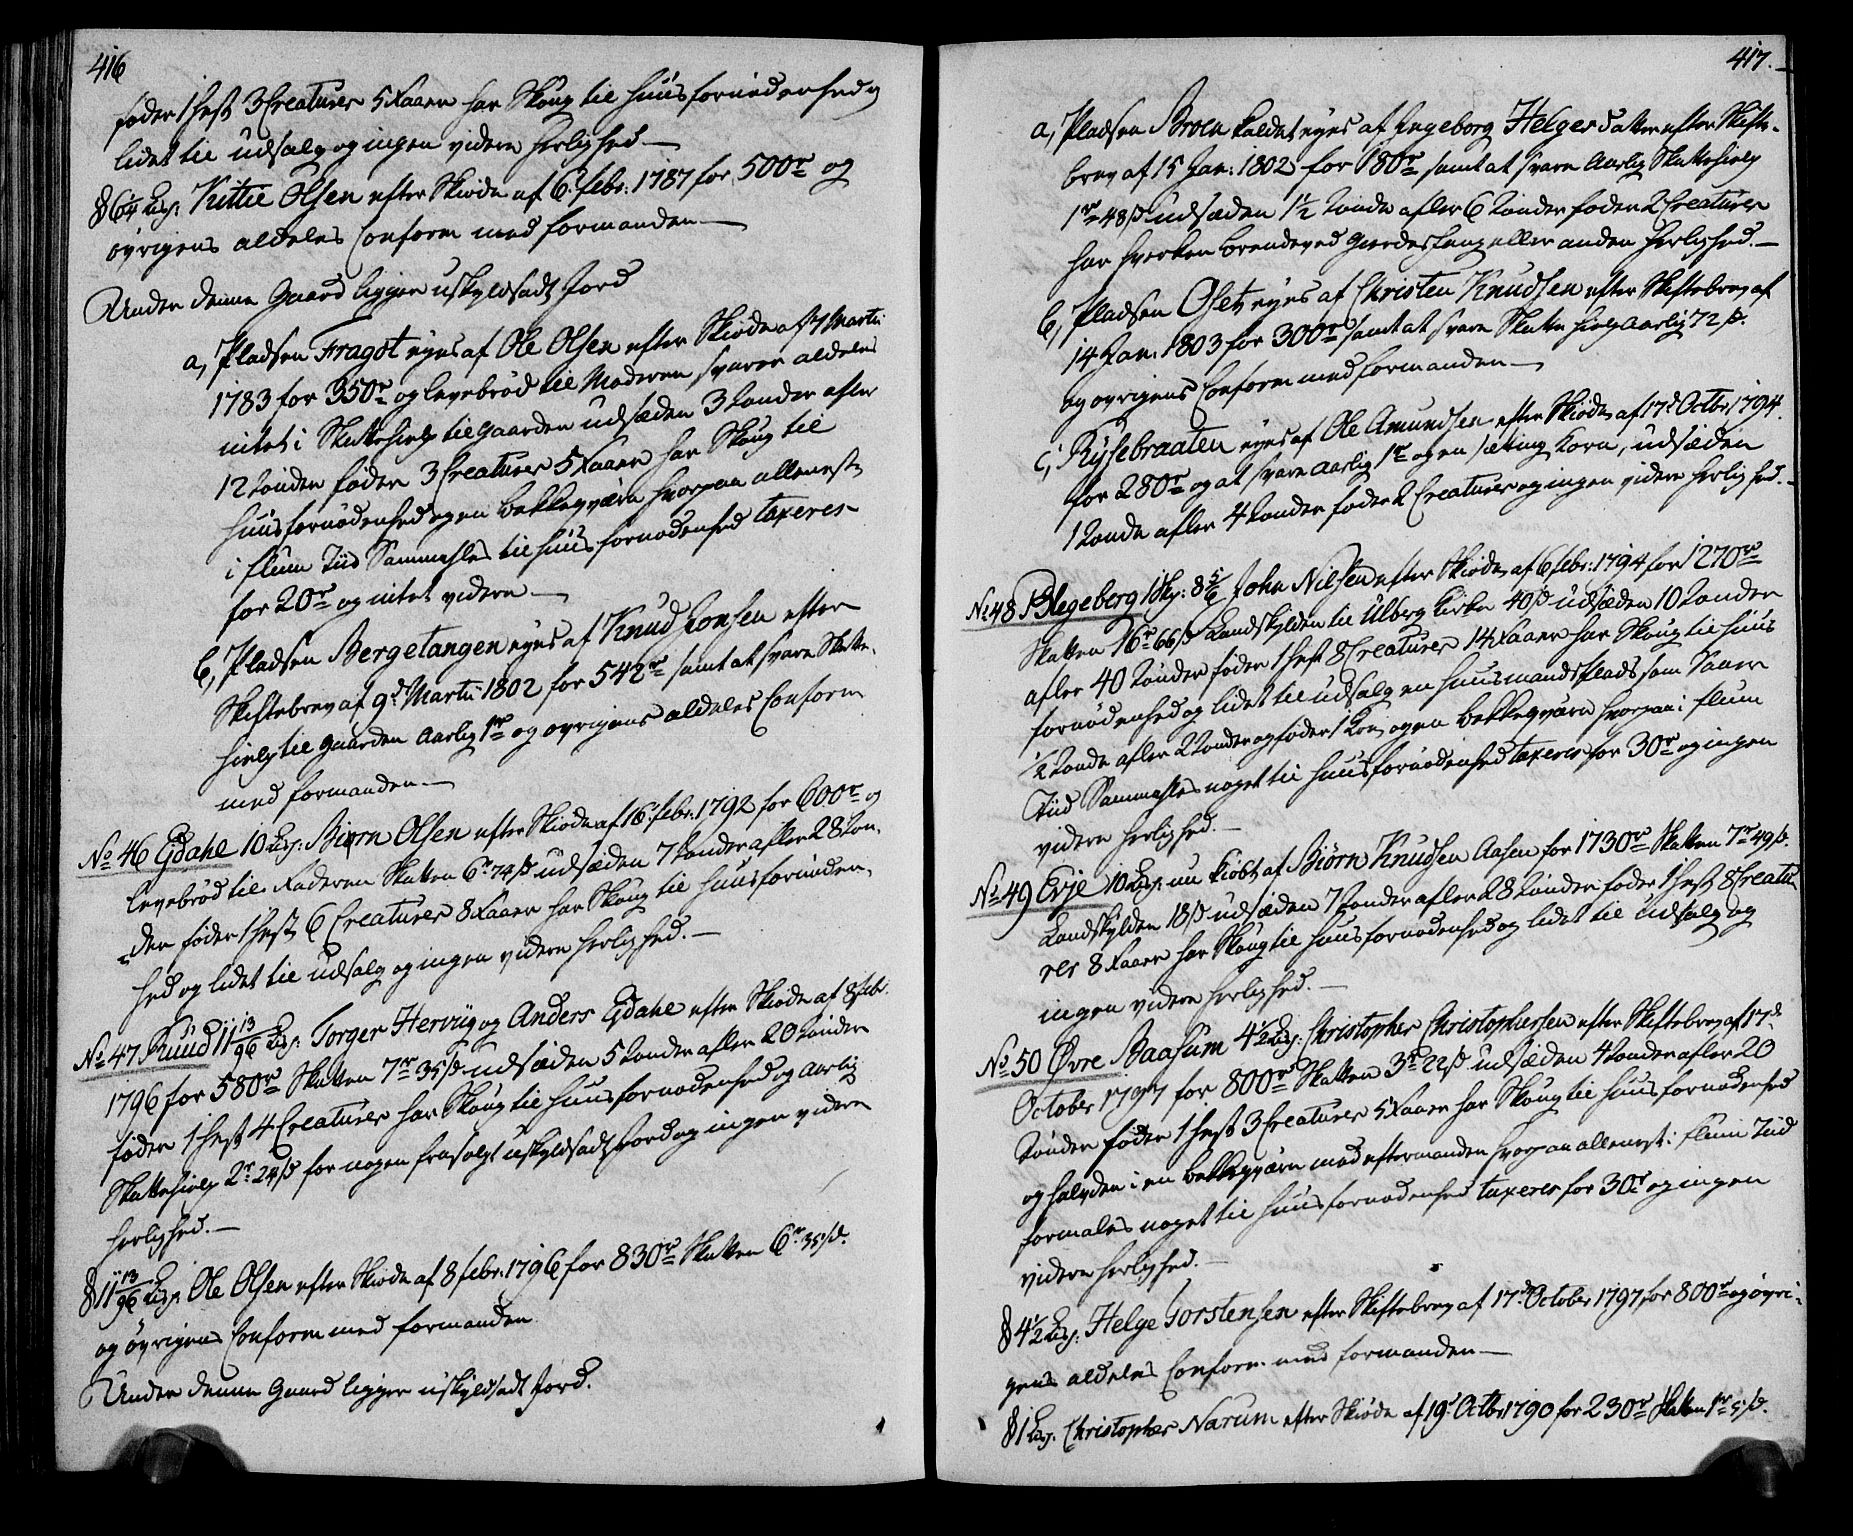 416
föder 1 Hest 3 Creaturer 5 Faaer har Skoug til Huusfornödenhed og
lidet til udsalg og ingen videre herlighed —
§ 6¼ Lisp: Kittil Olsen efter Skiöde af 6. febr: 1787 for 500 r og
övrigens aldeles Conform med formanden —
Under denne Gaard ligger uskyldsadt Jord
a, Pladsen Fragot eyes af Ole Olsen efter Skiöde af 7 Martii
1783 for 350 r og levebröd til Moderen svarer aldeles
intet i Skattehielp til Gaarden udsæden 3 tonder afler
12 tönder föder 3 Creaturer 5 Faaer har Skoug til
huusfornödenhed og en bekkeqværn hvorpaa alleneste
i flum Tiid Sammahles til huusfornödenhed taxeres
for 20 r og intet videre —
b, Pladsen Bergetangen eyes af Knud Jonsen efter
Skiftebrev af 9d Martii 1802 for 542 r samt at svare Skatte-
hielp til gaarden Aarlig 1 r og övrigens aldeles Conform
med formanden —
No 46 Gdahl 10 Lisp: Biørn Olsen efter Skiöde af 16. febr: 1792 for 600 r og
levebröd til Faderen Skatten 6 r 74 s udsæden 7 tönder afler 28 tön-
der föder 1 Hest 6 Creaturer 8 Faaer har Skoug til huusfornöden-
hed og lidet til udsalg og ingen videre herlighed. —
No 47 Ruud 11 13/96 Lisp: Torger Hervig og Anders Gdahl efter Skiöde af 8 febr.
1796 for 580 r Skatten 7 r 35 s udsæden 5 tönder afler 20 tönder
föder 1 Hest 4 Creaturer har Skoug til huusfornödenhed og aarlig
Skattehielp 2 r 24 s for nogen frasolgt uskyldsadt Jord og ingen videre
herlighed. —
§ 11 13/96 Lisp: Ole Olsen efter Skiöde af 8 febr: 1796 for 830 r Skatten 6 r 35 s.
og övrigens Conform med formanden
Under denne Gaard ligger uskyldsadt Jord.
417.
a, Pladsen Broen kaldet eyes af Ingeborg Helgesdatter efter Skifte-
brev af 15 Jan: 1802 for 180 r samt at svare Aarlig Skattehielp
1 r 48 s udsæden 1½ tönde afler 6 tönder föder 2 Creaturer
har hverken brendeved Gierdeshang eller anden herlighed. —
b, Pladsen Oset eyes af Christen Knudsen efter Skiftebrev af
14 Jan: 1803 for 300 r samt at svare Skatte hielp aarlig 72 s.
og övrigens Conform med formanden —
c, Rysebraaten eyes af Ole Amundsen efter Skiöde af 17d Octbr 1794.
for 280 r og at svare aarlig 1 r og en sætting Korn, udsæden
1 tönde afler 4 tönder föder 2 Creaturer og ingen videre herlighed. —
No 48 Blegeberg 1 Skp: 8 5/6 John Nilsen efter Skiöde af 6 febr: 1794 for 1270 r
Skatten 16 r 66 s Landskylden til Ulberg Kirke 40 s udsæden 10 tönder
afler 40 tönder föder 1 Hest 8 Creaturer 14 Faaer har Skoug til huus
fornödenhed og lidet til udsalg en huusmandsplads som Saaer
½ tönde afler 2 tönder og föder 1 Koe, og en bekkeqværn hvorpaa i flum
Tiid Sammahles noget til huusfornödenhed taxeres for 30 r og ingen
videre herlighed. —
No 49 Evje 10 Lisp: nu kiöbt af Biörn Knudsen Aasen for 1730 r Skatten 7 r 49 s.
Landskylden 18 s udsæden 7 tönder afler 28 tönder föder 1 Hest 8 Creatu-
rer 8 Faaer har Skoug til huusfornödenhed og lidet til udsalg og
ingen videre herlighed. —
No 50 Øvre Baasum 4½ Lisp: Christopher Christophersen efter Skiftebrev af 17d
October 1797 for 800 r Skatten 3 r 22 s udsæden 4 tönder afler 20
tönder föder 1 Hest 3 Creaturer 5 Faaer har Skoug til huusfornödenhed
og halvden i en bekkeqværn med eftermanden hvorpaa allenest i flum Tiid
formales noget til huusfornödenhed taxeres for 30 r og ingen
videre herlighed. —
§ 4½ Lisp: Helge Torstensen efter Skiftebrev af 17d October 1797 for 800 r og övri-
gens aldeles Conform med formanden —
§ 1 Lisp. Christopher Narum efter Skiöde af 19d Octbr 1790 for 230 r Skatten 1 r 5 s.